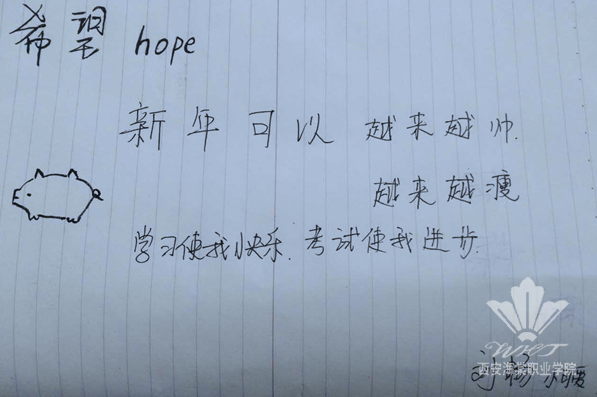 希望 hope
新年可以 越来越帅.
越来越瘦
学习使我快乐. 考试使我进步.
西安海棠职业学院
刘杨